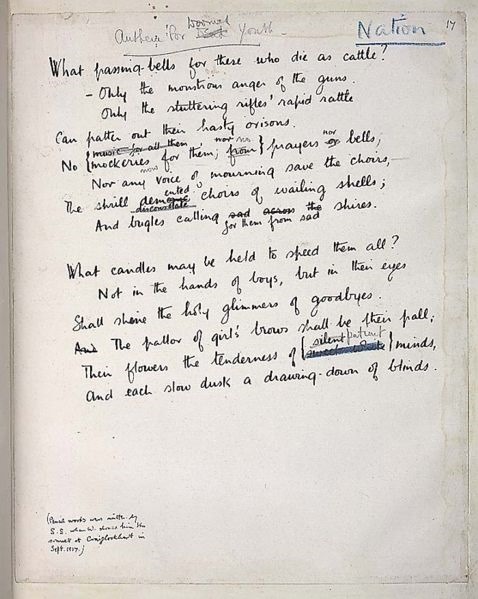 Anthem for Dead Doomed Youth.
Nation
17
What passing-bells for these who die as cattle?
- Only the monstrous anger of the guns.
Only the stuttering rifles' rapid rattle
Can patter out their hasty orisons.
music for all them nor no
No mockeries for them; from prayers nor or bells;
now
Nor any voice of mourning save the choirs,-
The shrill demented choirs of wailing shells;
disconsolate
And bugles calling sad across the shires.
for them from sad
What candles may be held to speed them all?
Not in the hands of boys, but in their eyes
Shall shine the holy glimmers of goodbyes.
And The pallor of girls' brows shall be their pall;
silent patient
Their flowers the tenderness of minds,
And each slow dusk a drawing-down of blinds.
(Pencil words were written by
S.S. when W. showed him the
sonnet at Craiglockhart in
Sept. 1917.)